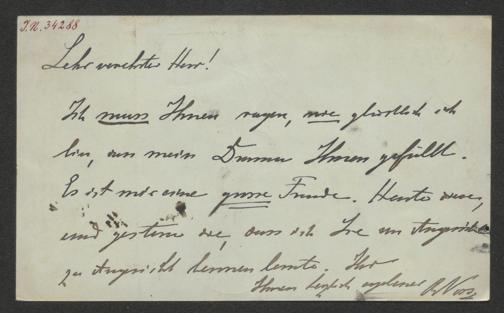 I.N. 34288
Sehr verehrter Herr!
Ich muss Ihnen sagen, wie glücklich ich
bin, dass mein Drama Ihnen gefällt.
Es ist mir eine grosse Freude. Heute
und gestern die, dass ich Sie von Angesicht
zu Angesicht kennen lernte. Ihr
Ihnen herzlich ergebener R. Voss